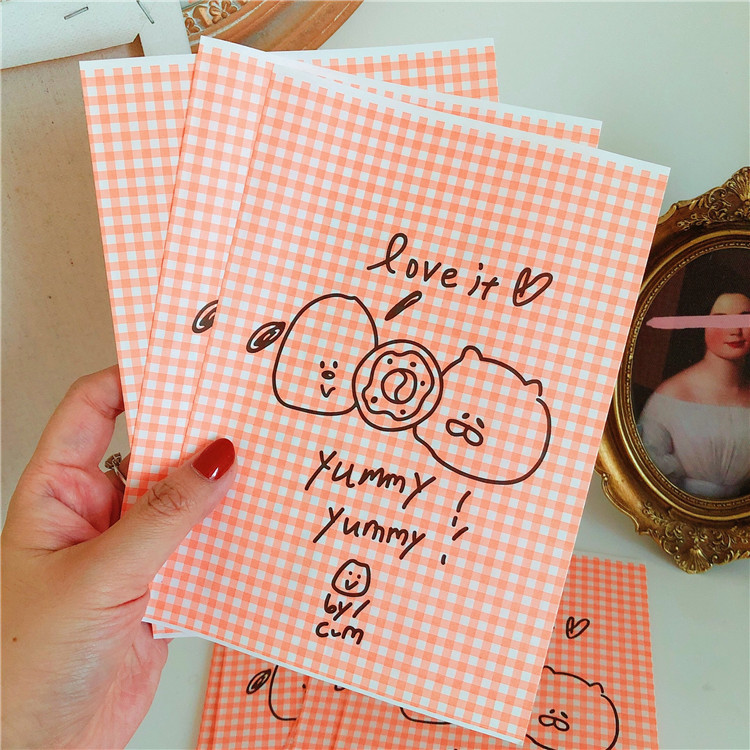 love it ♡
yummy!
yummy!
by/
cum